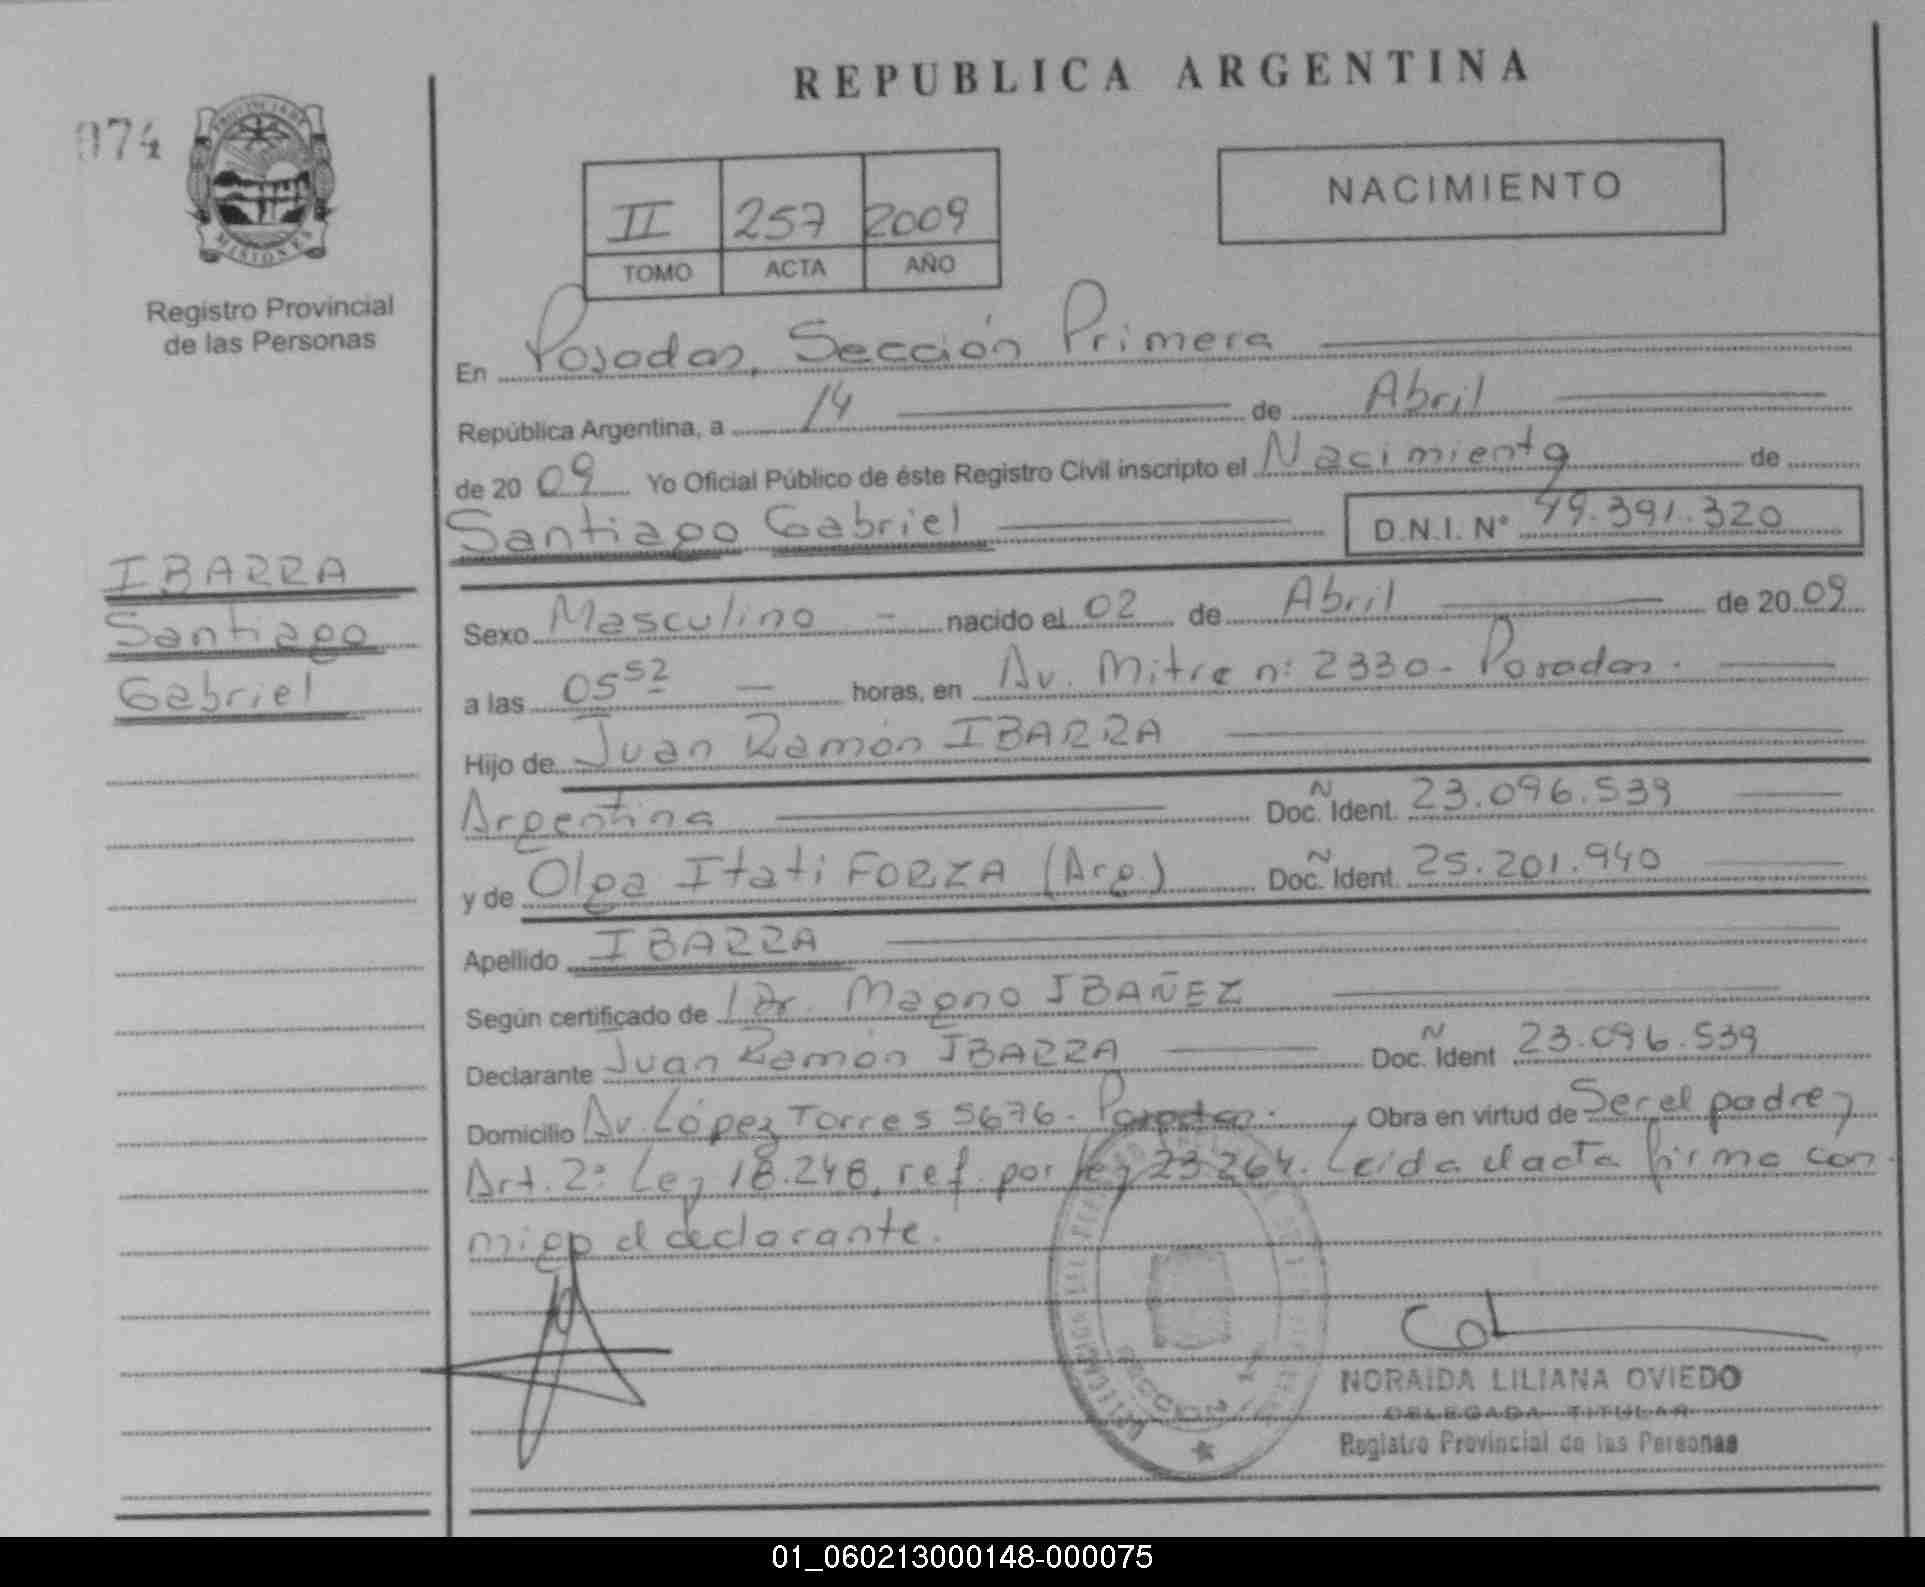 REPUBLICA ARGENTINA
074
PROVINCIA DE
MISIONES
Registro Provincial
de las Personas
II 257 2009
TOMO ACTA AÑO
NACIMIENTO
En Posadas, Sección Primera
República Argentina, a 14 de Abril
de 2009 Yo Oficial Público de éste Registro Civil inscripto el Nacimiento de
Santiago Gabriel D.N.I. N° 49.391.320
IBARRA
Santiago
Gabriel
Sexo Masculino - nacido el 02 de Abril de 2009
a las 05 52 — horas, en Av. Mitre n: 2330 - Posadas.
Hijo de Juan Ramón IBARRA
Argentina Doc. Ident. 23.096.539
y de Olga Itati FORZA (Arg.) Doc. Ident. 25.201.940
Apellido IBARRA
Según certificado de Dr. Magno IBAÑEZ
Declarante Juan Ramón IBARRA Doc. Ident 23.096.539
Domicilio Av. López Torres 5676 - Posadas. Obra en virtud de Ser el padre y
Art. 2: Ley 18.248, ref. por ley 23.264. Leida el acta firma con
migo el declarante.
SECCION 1a
NORAIDA LILIANA OVIEDO
DELEGADA TITULAR
Registro Provincial de las Personas
01_060213000148-000075